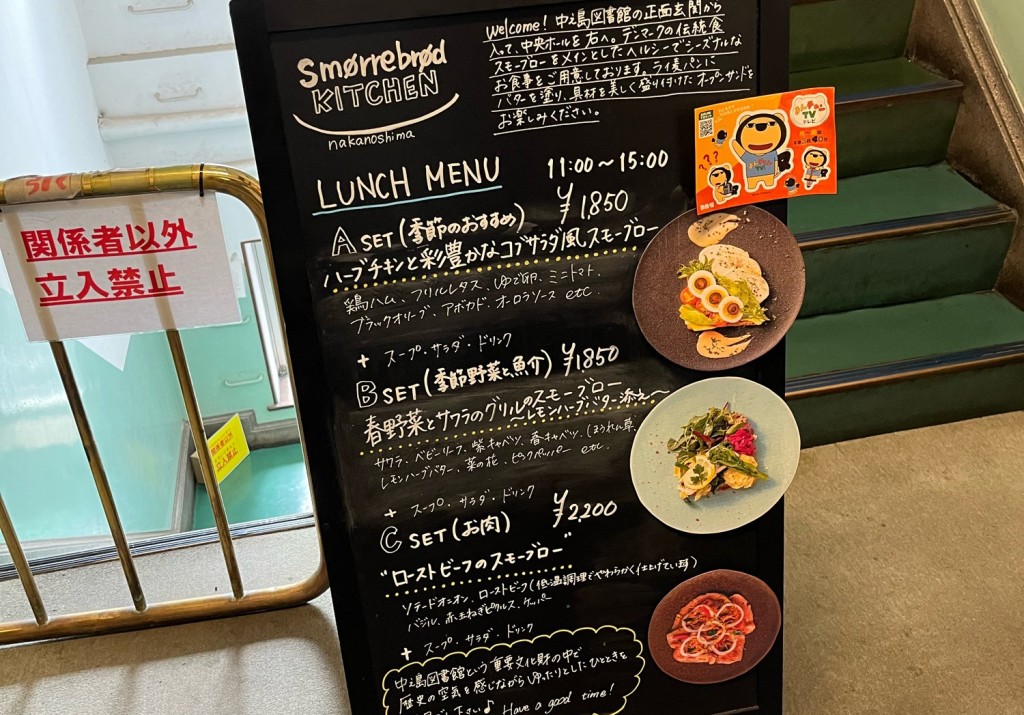 smørrebrød
KITCHEN
nakanoshima
Welcome! 中之島図書館の正面玄関から
入って、中央ホールを右へ。デンマークの伝統食
スモーブローをメインとしたヘルシーでシーズナルな
お食事をご用意しております。ライ麦パンに
バターを塗り、具材を美しく盛り付けたオープンサンドを
お楽しみください。
LUNCH MENU 11:00〜15:00
A SET (季節のおすすめ) ¥1,850
ハーブチキンと彩豊かなコブサラダ風スモーブロー
鶏ハム、フリルレタス、ゆで卵、ミニトマト、
ブラックオリーブ、アボカド、オーロラソース etc
+ スープ・サラダ・ドリンク
B SET (季節野菜と魚介) ¥1,850
春野菜とサワラのグリルのスモーブロー
〜レモンハーブバター添え〜
サワラ、ベビーリーフ、紫キャベツ、春キャベツ、ほうれん草、
レモンハーブバター、菜の花、ピンクペッパー etc.
+ スープ・サラダ・ドリンク
C SET (お肉) ¥2,200
"ローストビーフのスモーブロー"
ソテードオニオン、ローストビーフ(低温調理でやわらかく仕上げています)
バジル、赤玉ねぎピクルス、ケッパー
+ スープ・サラダ・ドリンク
中之島図書館という重要文化財の中で
歴史の空気を感じながらゆったりとしたひとときを
下さい♪ Have a good time!
関係者以外
立入禁止
TV
テレビ
???
立入禁止